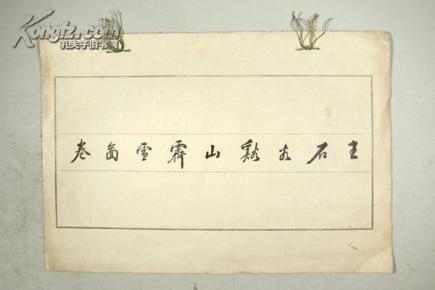 Kongfz.com
孔夫子旧书网
王石谷谿山霽雪圖卷